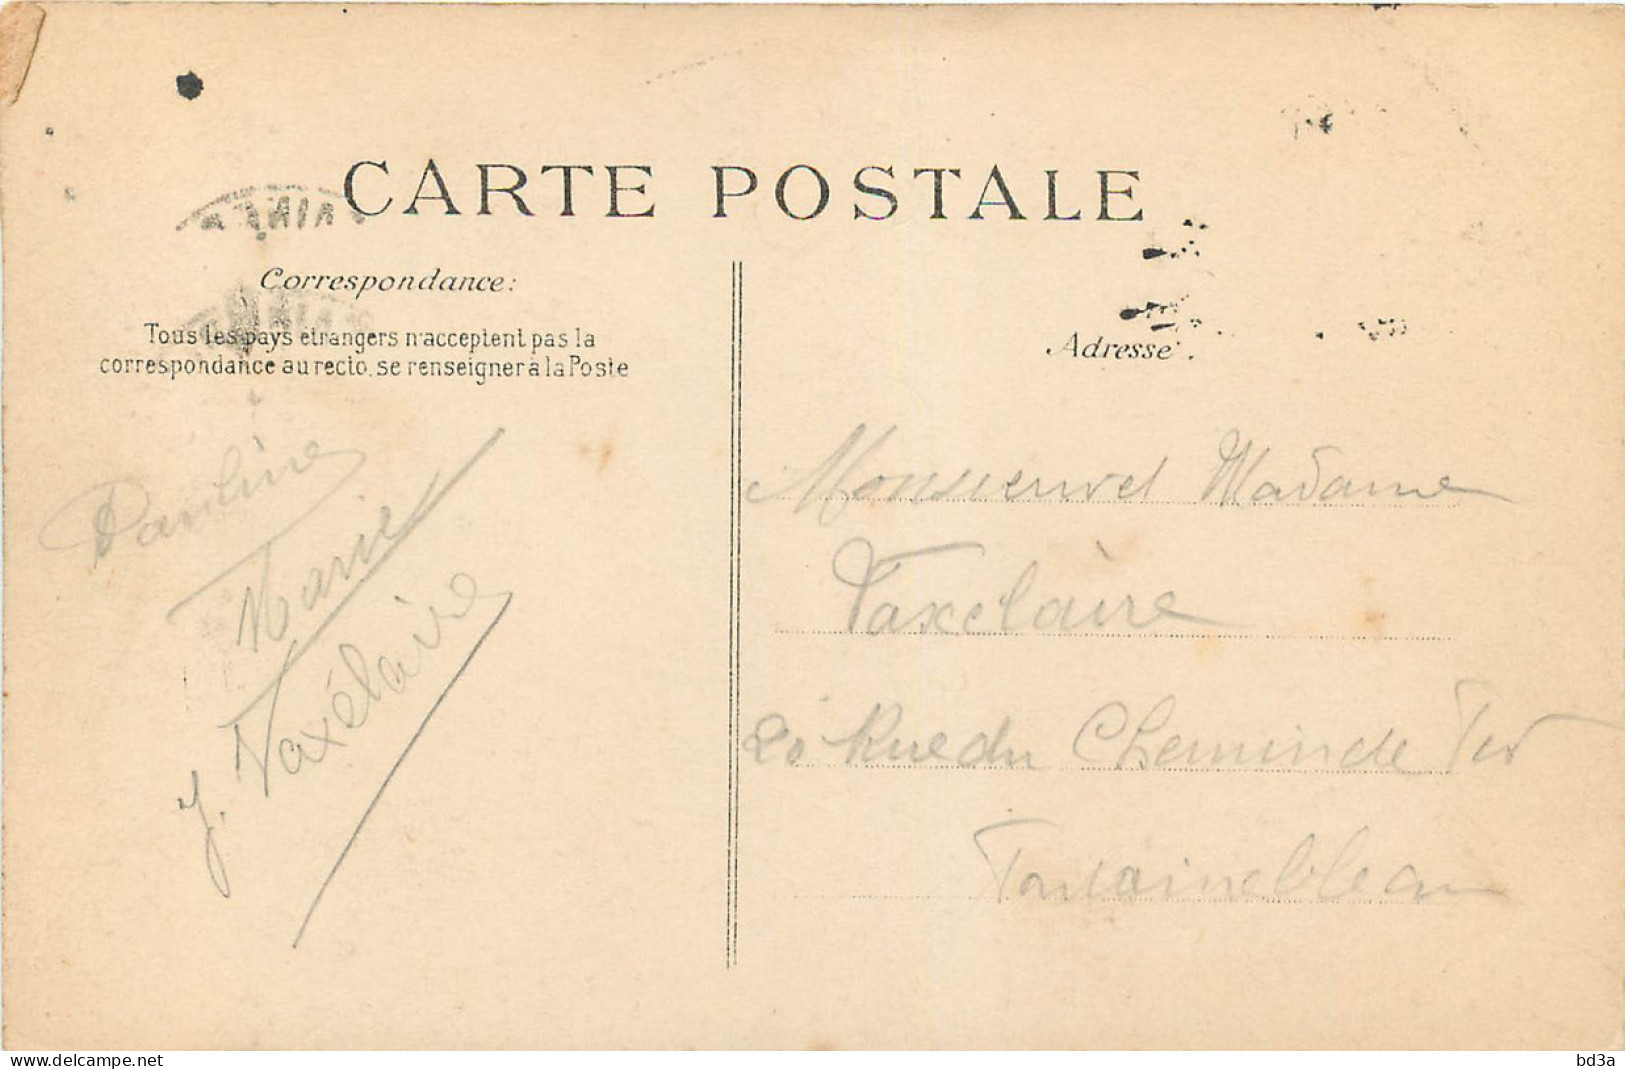 CARTE POSTALE
Correspondance:
Tous les pays étrangers n'acceptent pas la
correspondance au recto, se renseigner à la Poste
Pauline
Marie
J. Taxélaire
Adresse.
Monsieur et Madame
Taxelaire
20 Rue du Chemin de Fer
Fontainebleau
www.delcampe.net
bd3a